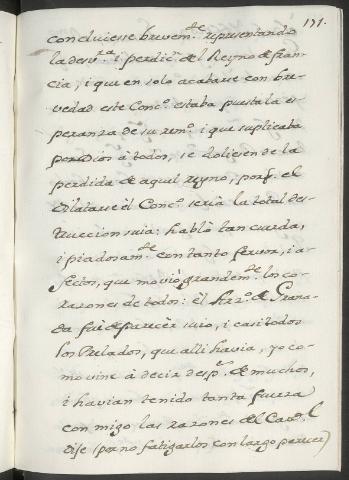 171.
concluiese brevem.te representando
la desv.ra i perdiç.n del Reyno de fran-
cia, i que en solo acabarse con bre-
vedad este Conc.o estaba puesta la es-
peranza de su rem.o i que suplicaba
por Dios à todos, se doliesen de la
perdida de aquel reyno, porq. el
dilatarse èl Conc.o seria la total des-
truccion suia: hablò tan cuerda,
i piadosam.te con tanto fervor, i a-
fectos, que moviò grandem.te los co-
razones de todos: èl Arz.o de Grana-
da fuè de parecèr suio, i casi todos
los Prelados, que alli havia, yo co-
mo vine à decir desp.s de muchos,
i havian tenido tanta fuerza
con migo las razones del Card.l
dije (por no fatigarlos con largo parecer)